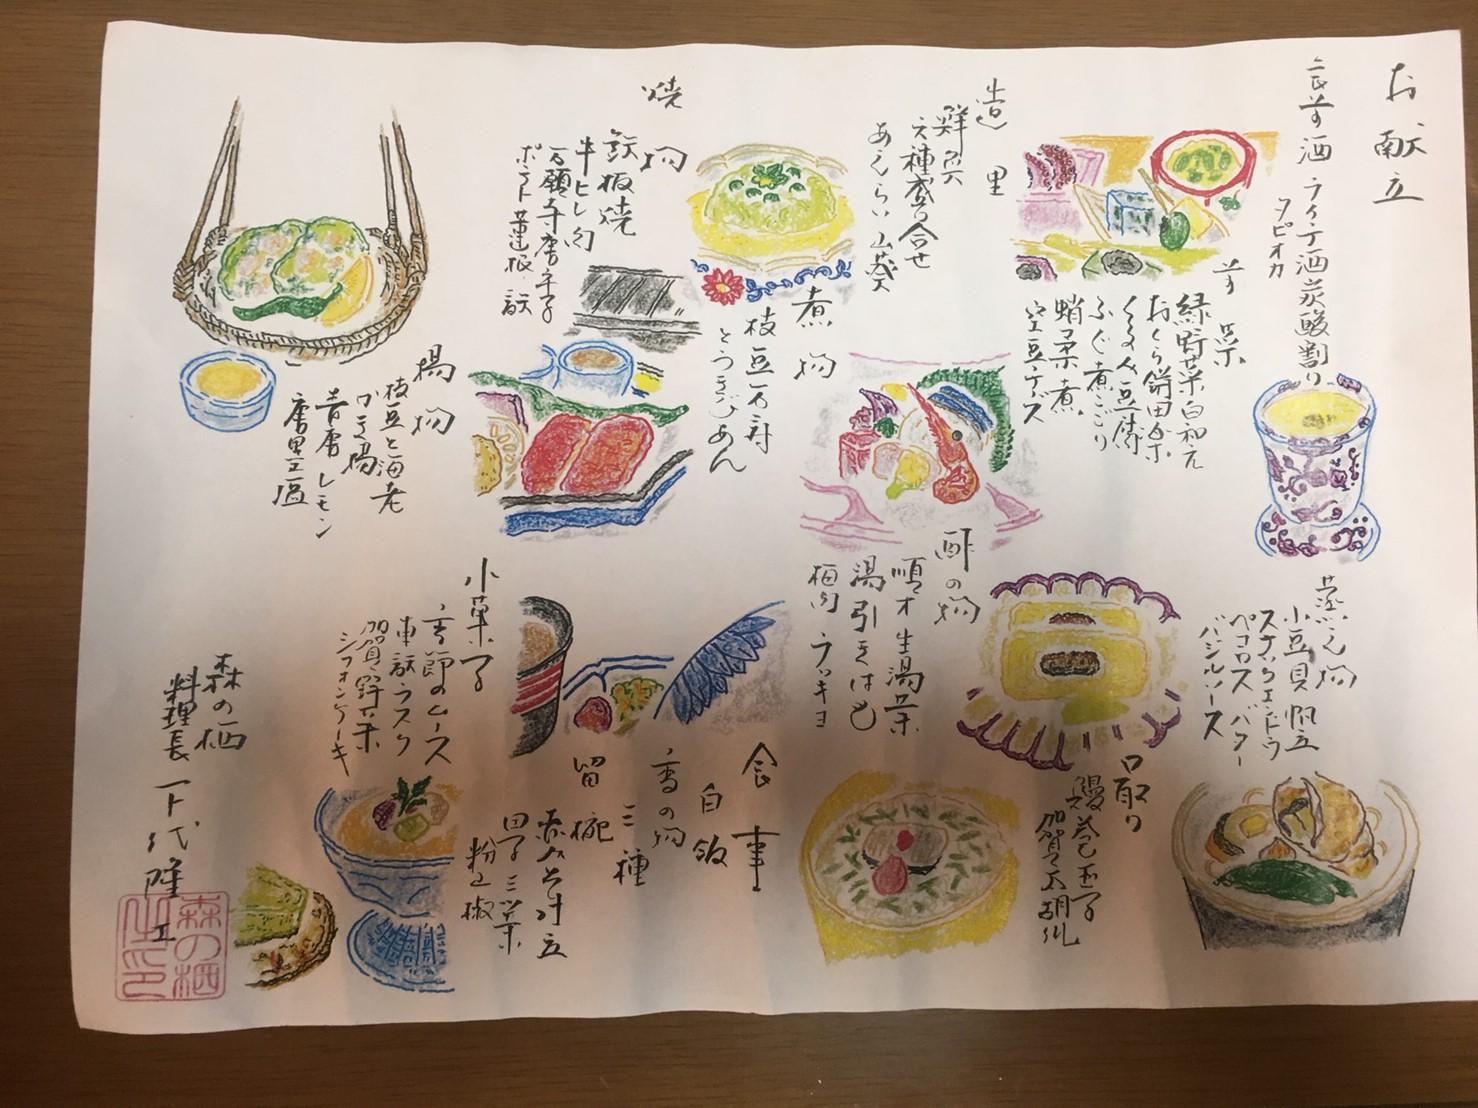 お献立
食前酒 ライチ酒炭酸割り
タピオカ
前菜
緑野菜白和え
おくら餅田楽
くるみ豆腐
ふぐ煮こごり
蛸柔煮
空豆チーズ
造里
鮮魚
七種盛合せ
あしらい 山葵
煮物
枝豆万頭
とうきびあん
焼物
鉄板焼
牛ヒレ肉
万願寺唐辛子
ポテト 蓮根
揚物
枝豆と海老
かき揚
青唐 レモン
蒸し物
小豆 貝 帆立
スナックエンドウ
ペコロス バター
バジルソース
口取り
鰻巻玉子
加賀太胡瓜
酢の物
順才 生湯葉
湯引きはも
梅肉 ラッキョ
食事
白飯
香の物
三種
留椀
赤みそ汁
三つ葉
粉山椒
小菓子
ムース
ラスク
加賀野菜
シフォンケーキ
森の栖
料理長 下代隆
森の栖
之印